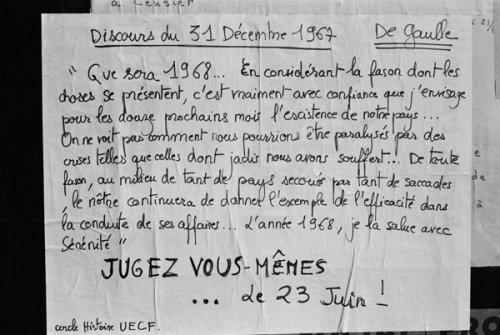 à Censier
Discours du 31 Décembre 1967 De Gaulle
" Que sera 1968... En considérant la fason dont les
choses se présentent, c'est vraiment avec confiance que j'envisage
pour les douze prochains mois l'existence de notre pays...
On ne voit pas comment nous pourrions être paralysés par des
crises telles que celles dont jadis nous avons souffert... De toute
fason, au milieu de tant de pays secoués par tant de saccades
le nôtre continuera de donner l'exemple de l'efficacité dans
la conduite de ses affaires... L'année 1968, je la salue avec
Sérénité "
JUGEZ VOUS-MÊMES
... de 23 Juin !
cercle Histoire UECF.